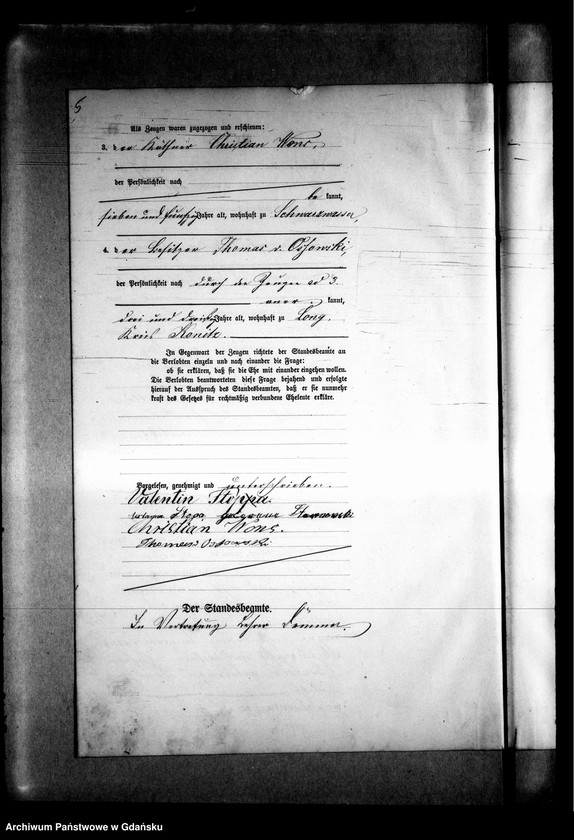 5
Als Zeugen waren zugezogen und erschienen:
3. der Käthner Christian Wons,
der Persönlichkeit nach
be kannt,
sieben und fünfzig Jahre alt, wohnhaft zu Schwarzwasser,
4. der Besitzer Thomas v. Ossowski,
der Persönlichkeit nach durch den Zeugen ad 3.
aner kannt,
drei und dreißig Jahre alt, wohnhaft zu Long,
Kreis Konitz.
In Gegenwart der Zeugen richtete der Standesbeamte an
die Verlobten einzeln und nach einander die Frage:
ob sie erklären, daß sie die Ehe mit einander eingehen wollen.
Die Verlobten beantworteten diese Frage bejahend und erfolgte
hierauf der Ausspruch des Standesbeamten, daß er sie nunmehr
kraft des Gesetzes für rechtmäßig verbundene Eheleute erkläre.
Vorgelesen, genehmigt und unterschrieben.
Valentin Stoppa.
Stopa
Christian Wons.
Thomas Ossowski
Der Standesbeamte.
In Vertretung Lehrer
Archiwum Państwowe w Gdańsku